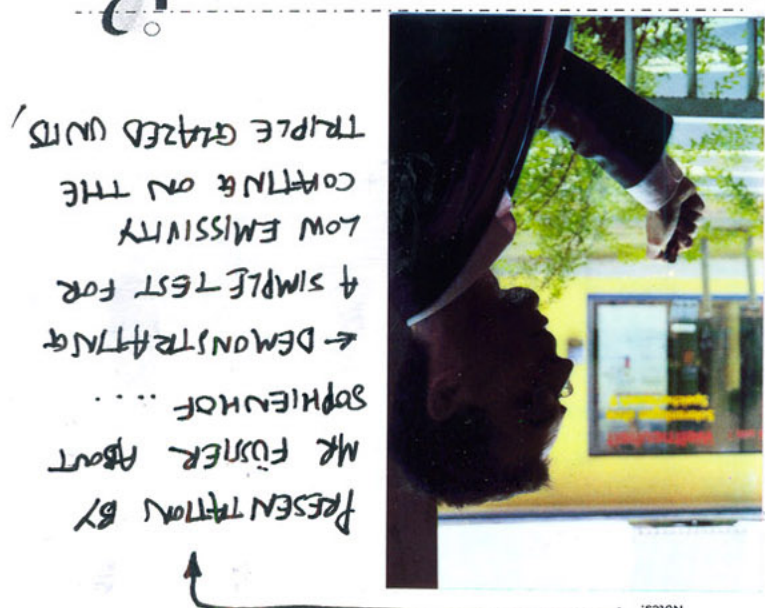 Notes:
PRESENTATION BY
MR FÜSSLER ABOUT
SOPHIENHOF ....
← DEMONSTRATING
A SIMPLE TEST FOR
LOW EMISSIVITY
COATING ON THE
TRIPLE GLAZED UNITS,